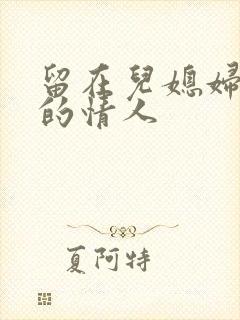 留在兒媳婦
的情人
夏阿特